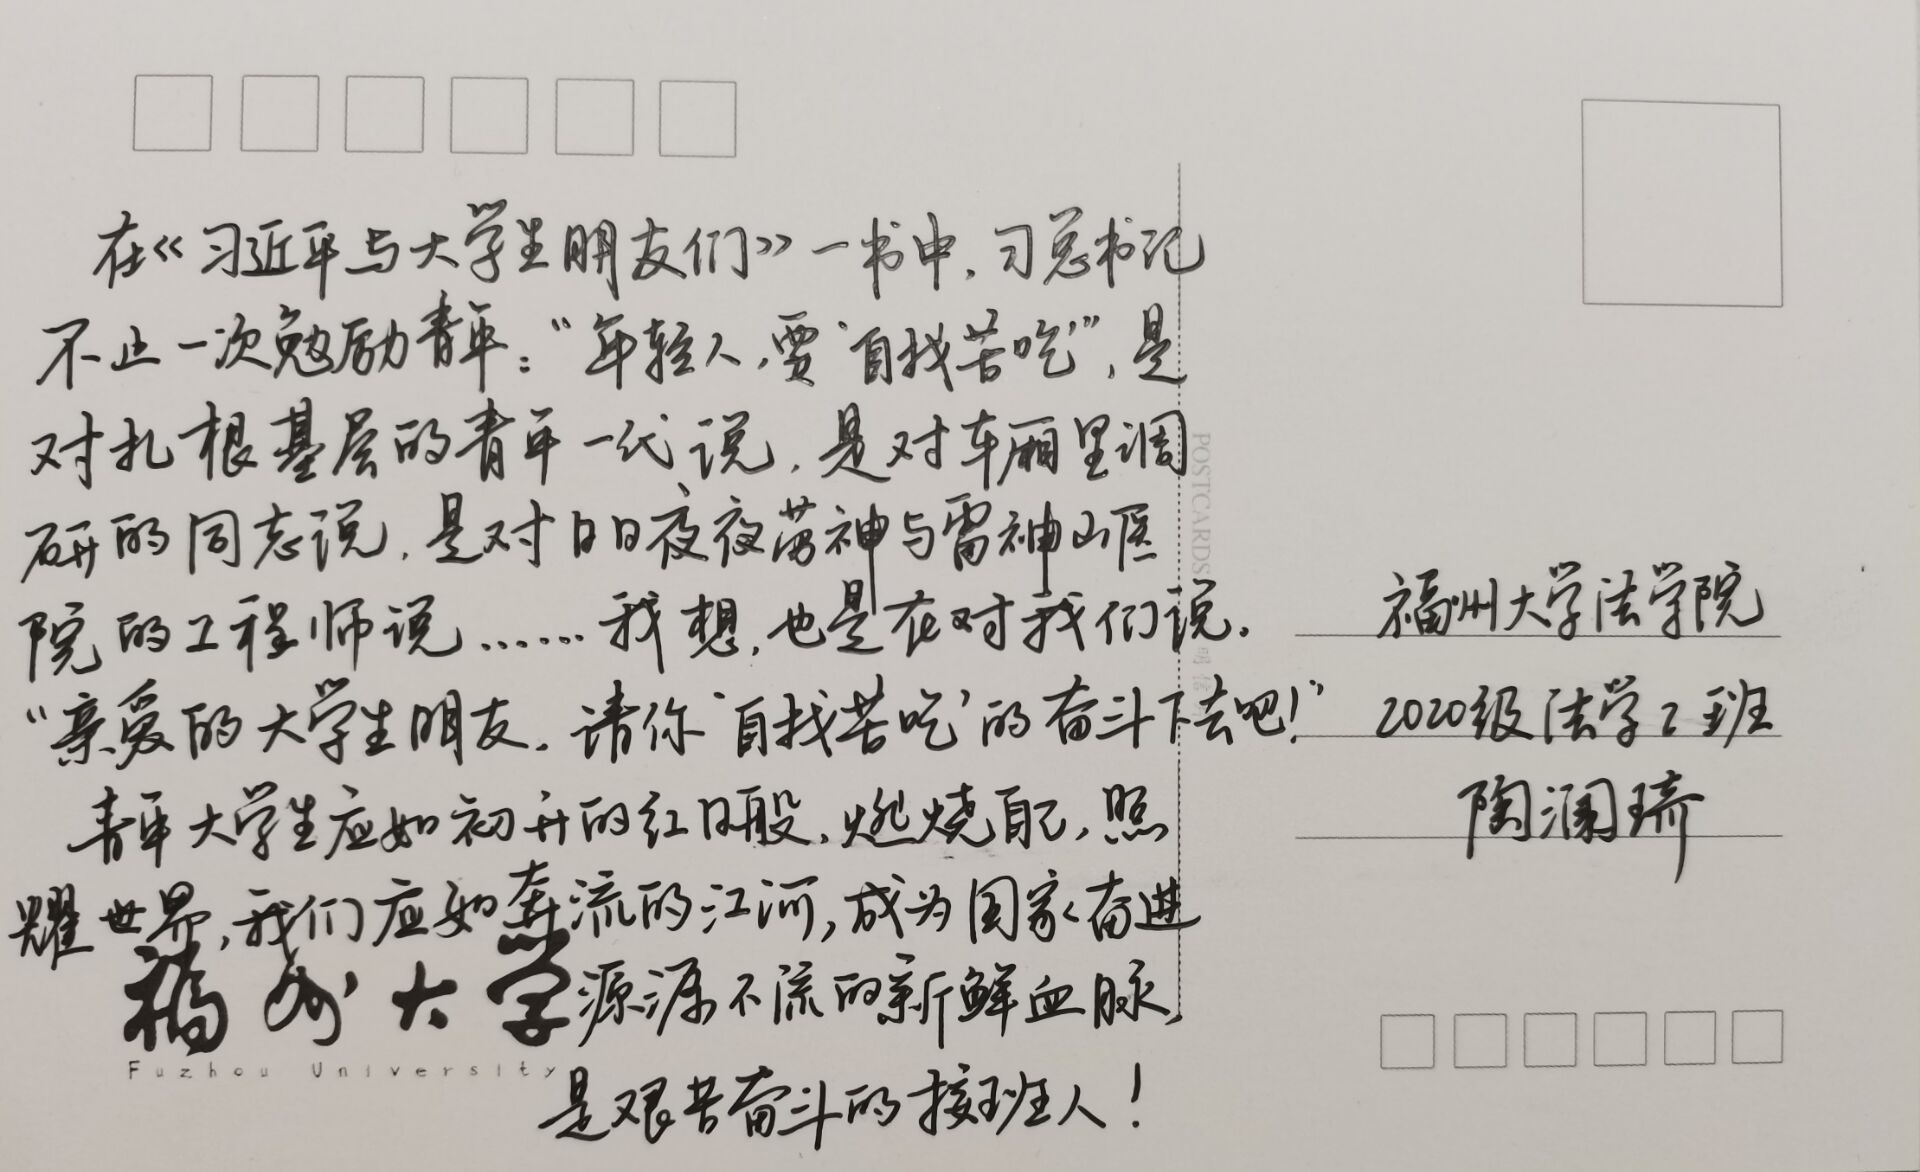 在《习近平与大学生朋友们》一书中，习总书记
不止一次勉励青年：“年轻人，要‘自找苦吃’”，是
对扎根基层的青年一代说，是对车厢里调
研的同志说，是对日日夜夜雷神与雷神山医
院的工程师说……我想，也是在对我们说。
“亲爱的大学生朋友，请你‘自找苦吃’的奋斗下去吧！”
青年大学生应如初升的红日般，燃烧自己，照
耀世界，我们应如奔流的江河，成为国家奋进
源源不流的新鲜血脉，
是艰苦奋斗的接班人！
福州大学
Fuzhou University
POSTCARDS
明信
福州大学法学院
2020级法学2班
陶澜琦